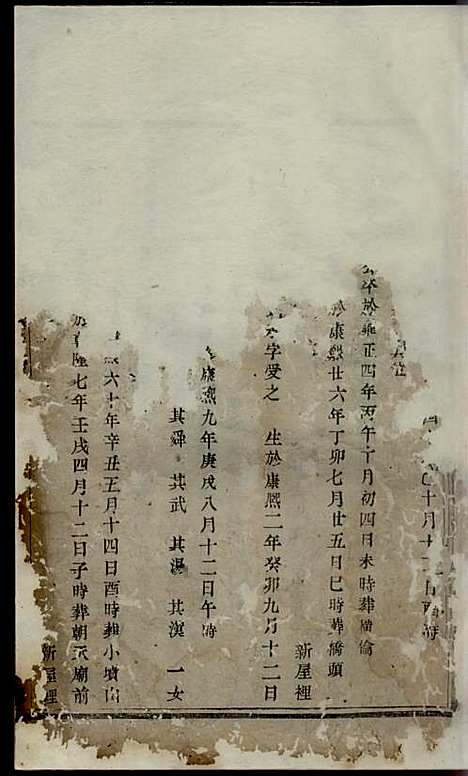 十月十二日酉時
公卒於雍正四年丙午十月初四日未時葬
康熙廿六年丁卯七月廿五日巳時葬橋頭
新屋裡
字受之 生於康熙二年癸卯九月十二日
康熙九年庚戌八月十二日午時
其舜 其武 其湯 其漢 一女
六十年辛丑五月十四日酉時葬小墳山
隆七年壬戌四月十二日子時葬朝天廟前
新屋裡